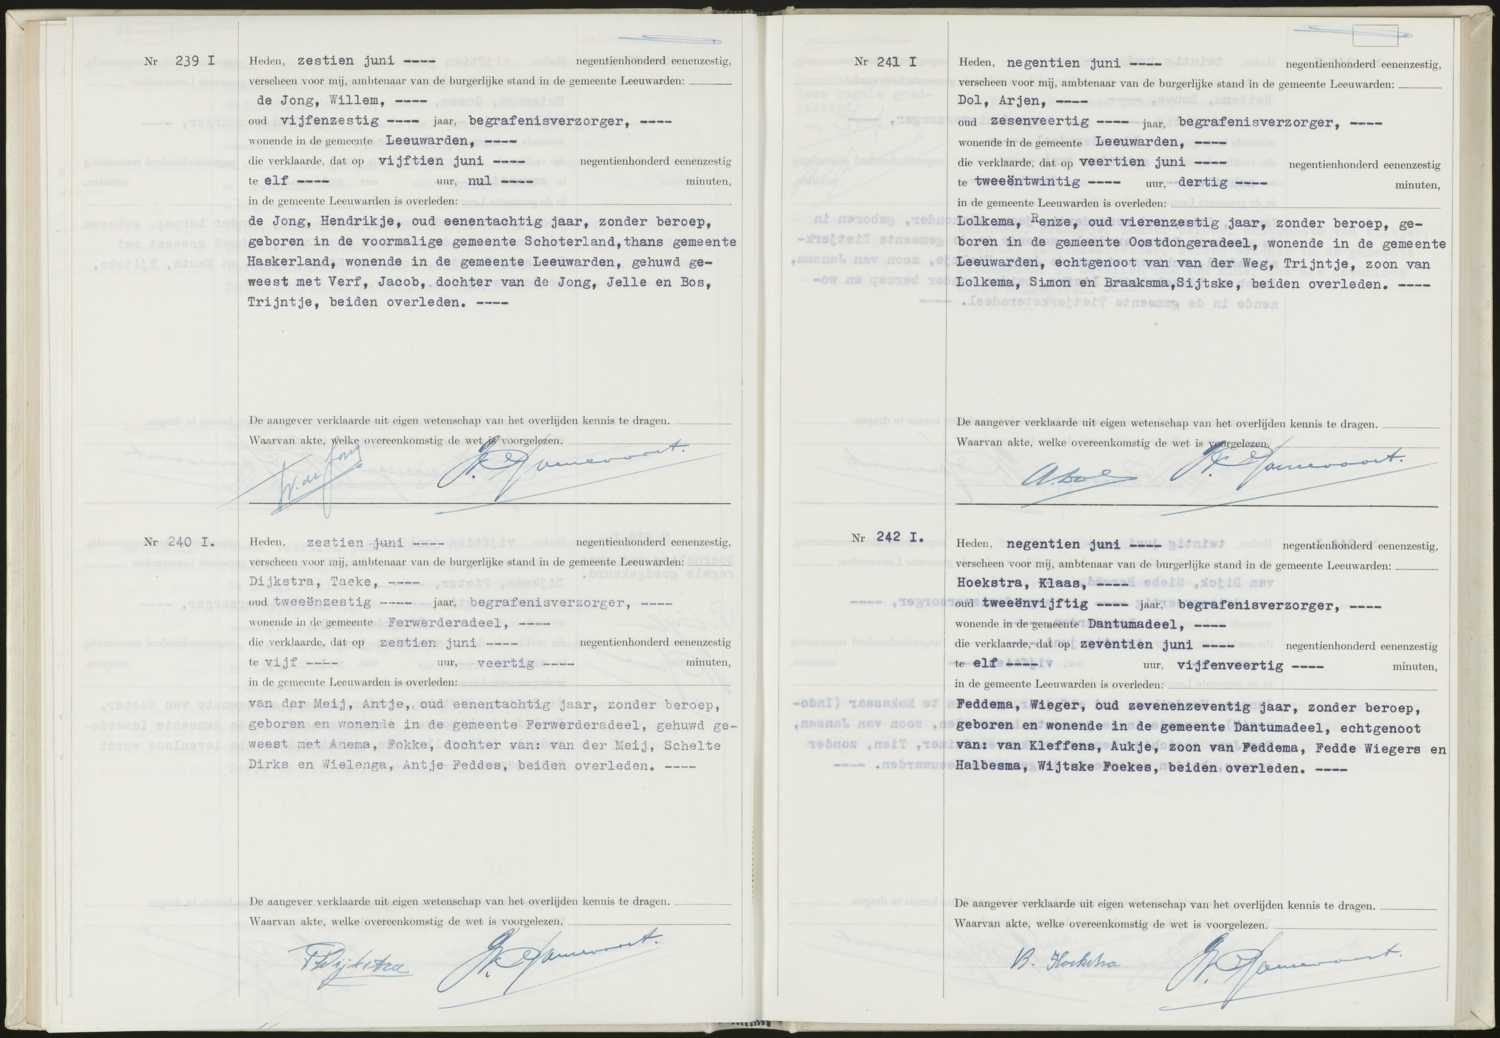 Nr 239 I
Heden, zestien juni ---- negentienhonderd eenenzestig,
verscheen voor mij, ambtenaar van de burgerlijke stand in de gemeente Leeuwarden:
de Jong, Willem, ----
oud vijfenzestig ---- jaar, begrafenisverzorger, ----
wonende in de gemeente Leeuwarden, ----
die verklaarde, dat op vijftien juni ---- negentienhonderd eenenzestig
te elf ---- uur, nul ---- minuten,
in de gemeente Leeuwarden is overleden:
de Jong, Hendrikje, oud eenentachtig jaar, zonder beroep,
geboren in de voormalige gemeente Schoterland,thans gemeente
Haskerland, wonende in de gemeente Leeuwarden, gehuwd ge-
weest met Verf, Jacob, dochter van de Jong, Jelle en Bos,
Trijntje, beiden overleden. ----
De aangever verklaarde uit eigen wetenschap van het overlijden kennis te dragen.
Waarvan akte, welke overeenkomstig de wet is voorgelezen.
W. de Jong
Nr 240 I.
Heden, zestien juni ---- negentienhonderd eenenzestig,
verscheen voor mij, ambtenaar van de burgerlijke stand in de gemeente Leeuwarden:
Dijkstra, Taeke, ----
oud tweeënzestig ---- jaar, begrafenisverzorger, ----
wonende in de gemeente Ferwerderadeel, ----
die verklaarde, dat op zestien juni ---- negentienhonderd eenenzestig
te vijf ---- uur, veertig ---- minuten,
in de gemeente Leeuwarden is overleden:
van der Meij, Antje, oud eenentachtig jaar, zonder beroep,
geboren en wonende in de gemeente Ferwerderadeel, gehuwd ge-
weest met Anema, Fokke, dochter van: van der Meij, Schelte
Dirks en Wielenga, Antje Feddes, beiden overleden. ----
De aangever verklaarde uit eigen wetenschap van het overlijden kennis te dragen.
Waarvan akte, welke overeenkomstig de wet is voorgelezen.
T. Dijkstra
Nr 241 I
Heden, negentien juni ---- negentienhonderd eenenzestig,
verscheen voor mij, ambtenaar van de burgerlijke stand in de gemeente Leeuwarden:
Dol, Arjen, ----
oud zesenveertig ---- jaar, begrafenisverzorger, ----
wonende in de gemeente Leeuwarden, ----
die verklaarde, dat op veertien juni ---- negentienhonderd eenenzestig
te tweeëntwintig ---- uur, dertig ---- minuten,
in de gemeente Leeuwarden is overleden:
Lolkema, Renze, oud vierenzestig jaar, zonder beroep, ge-
boren in de gemeente Oostdongeradeel, wonende in de gemeente
Leeuwarden, echtgenoot van van der Weg, Trijntje, zoon van
Lolkema, Simon en Braaksma,Sijtske, beiden overleden. ----
De aangever verklaarde uit eigen wetenschap van het overlijden kennis te dragen.
Waarvan akte, welke overeenkomstig de wet is voorgelezen.
A. Dol
Nr 242 I.
Heden, negentien juni ---- negentienhonderd eenenzestig,
verscheen voor mij, ambtenaar van de burgerlijke stand in de gemeente Leeuwarden:
Hoekstra, Klaas, ----
oud tweeënvijftig ---- jaar, begrafenisverzorger, ----
wonende in de gemeente Dantumadeel, ----
die verklaarde, dat op zeventien juni ---- negentienhonderd eenenzestig
te elf ---- uur, vijfenveertig ---- minuten,
in de gemeente Leeuwarden is overleden:
Feddema, Wieger, oud zevenenzeventig jaar, zonder beroep,
geboren en wonende in de gemeente Dantumadeel, echtgenoot
van: van Kleffens, Aukje, zoon van Feddema, Fedde Wiegers en
Halbesma, Wijtske Foekes, beiden overleden. ----
De aangever verklaarde uit eigen wetenschap van het overlijden kennis te dragen.
Waarvan akte, welke overeenkomstig de wet is voorgelezen.
K. Hoekstra